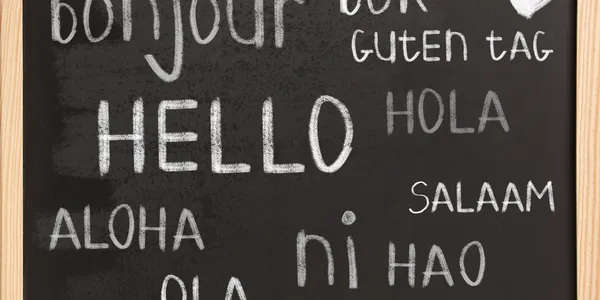 bonjour
GUTEN TAG
HELLO
HOLA
SALAAM
ALOHA
ni HAO
OLA